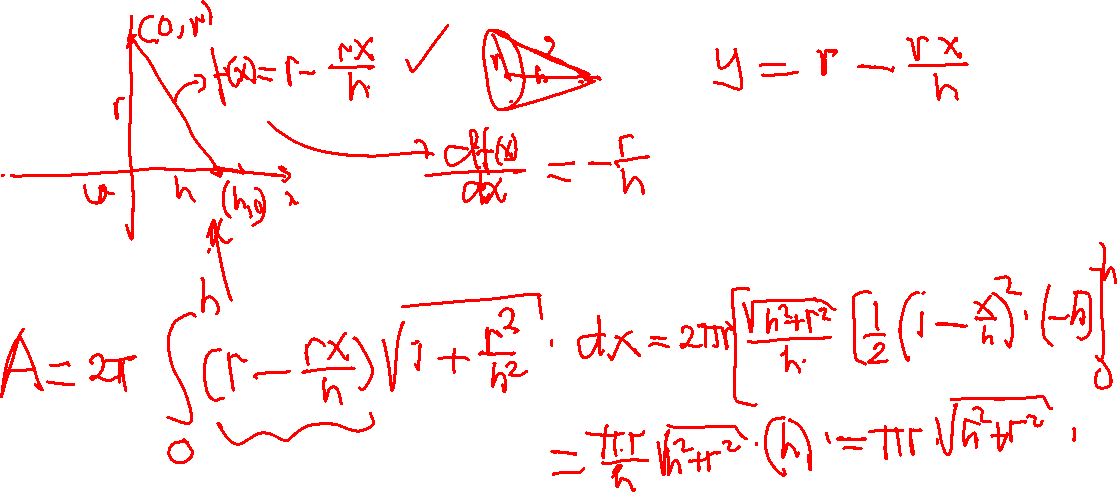 (0, r)
f(x) = r - \frac{rx}{h} ✓
y = r - \frac{rx}{h}
r
r h
\frac{df(x)}{dx} = -\frac{r}{h}
h (h,0) x
A = 2π \int_0^h (r - \frac{rx}{h}) \sqrt{1 + \frac{r^2}{h^2}} \cdot dx = 2πr [\frac{\sqrt{h^2+r^2}}{h} [\frac{1}{2} (1 - \frac{x}{h})^2 \cdot (-h)]_0^h
= \frac{πr}{h} \sqrt{h^2+r^2} \cdot (h) \cdot = πr \sqrt{h^2+r^2} .